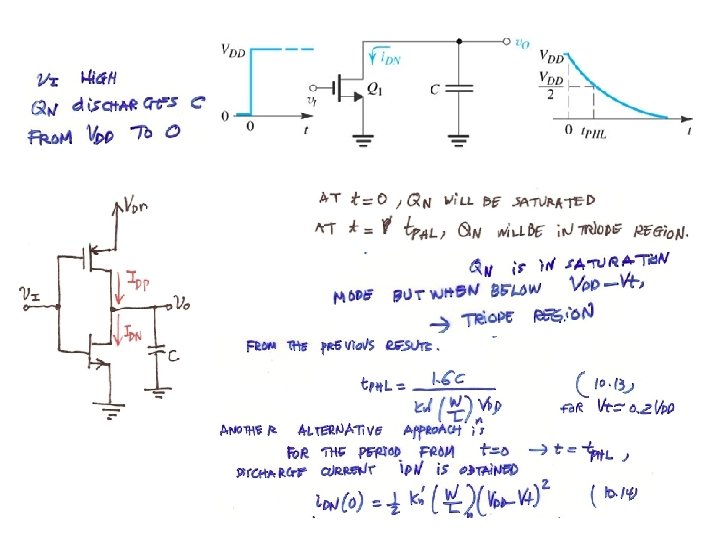 VI HIGH
QN DISCHARGES C
FROM VDD TO 0
VDD
0
0
t
vI
iDN
Q1
C
vO
VDD
VDD/2
0 tPHL
t
VDD
VI
IDP
IDN
Vo
C
AT t=0, QN WILL BE SATURATED
AT t = tPHL, QN WILL BE IN TRIODE REGION.
QN is IN SATURATION
MODE BUT WHEN BELOW VDD-Vt,
→ TRIODE REGION
FROM THE PREVIOUS RESULTS.
tPHL = 1.6C / kn'(W/L)n VDD (10.13)
FOR Vt = 0.2VDD
ANOTHER ALTERNATIVE APPROACH is
FOR THE PERIOD FROM t=0 → t = tPHL,
DISCHARGE CURRENT iDN IS OBTAINED
iDN(0) = 1/2 kn'(W/L)n(VDD-Vt)² (10.14)